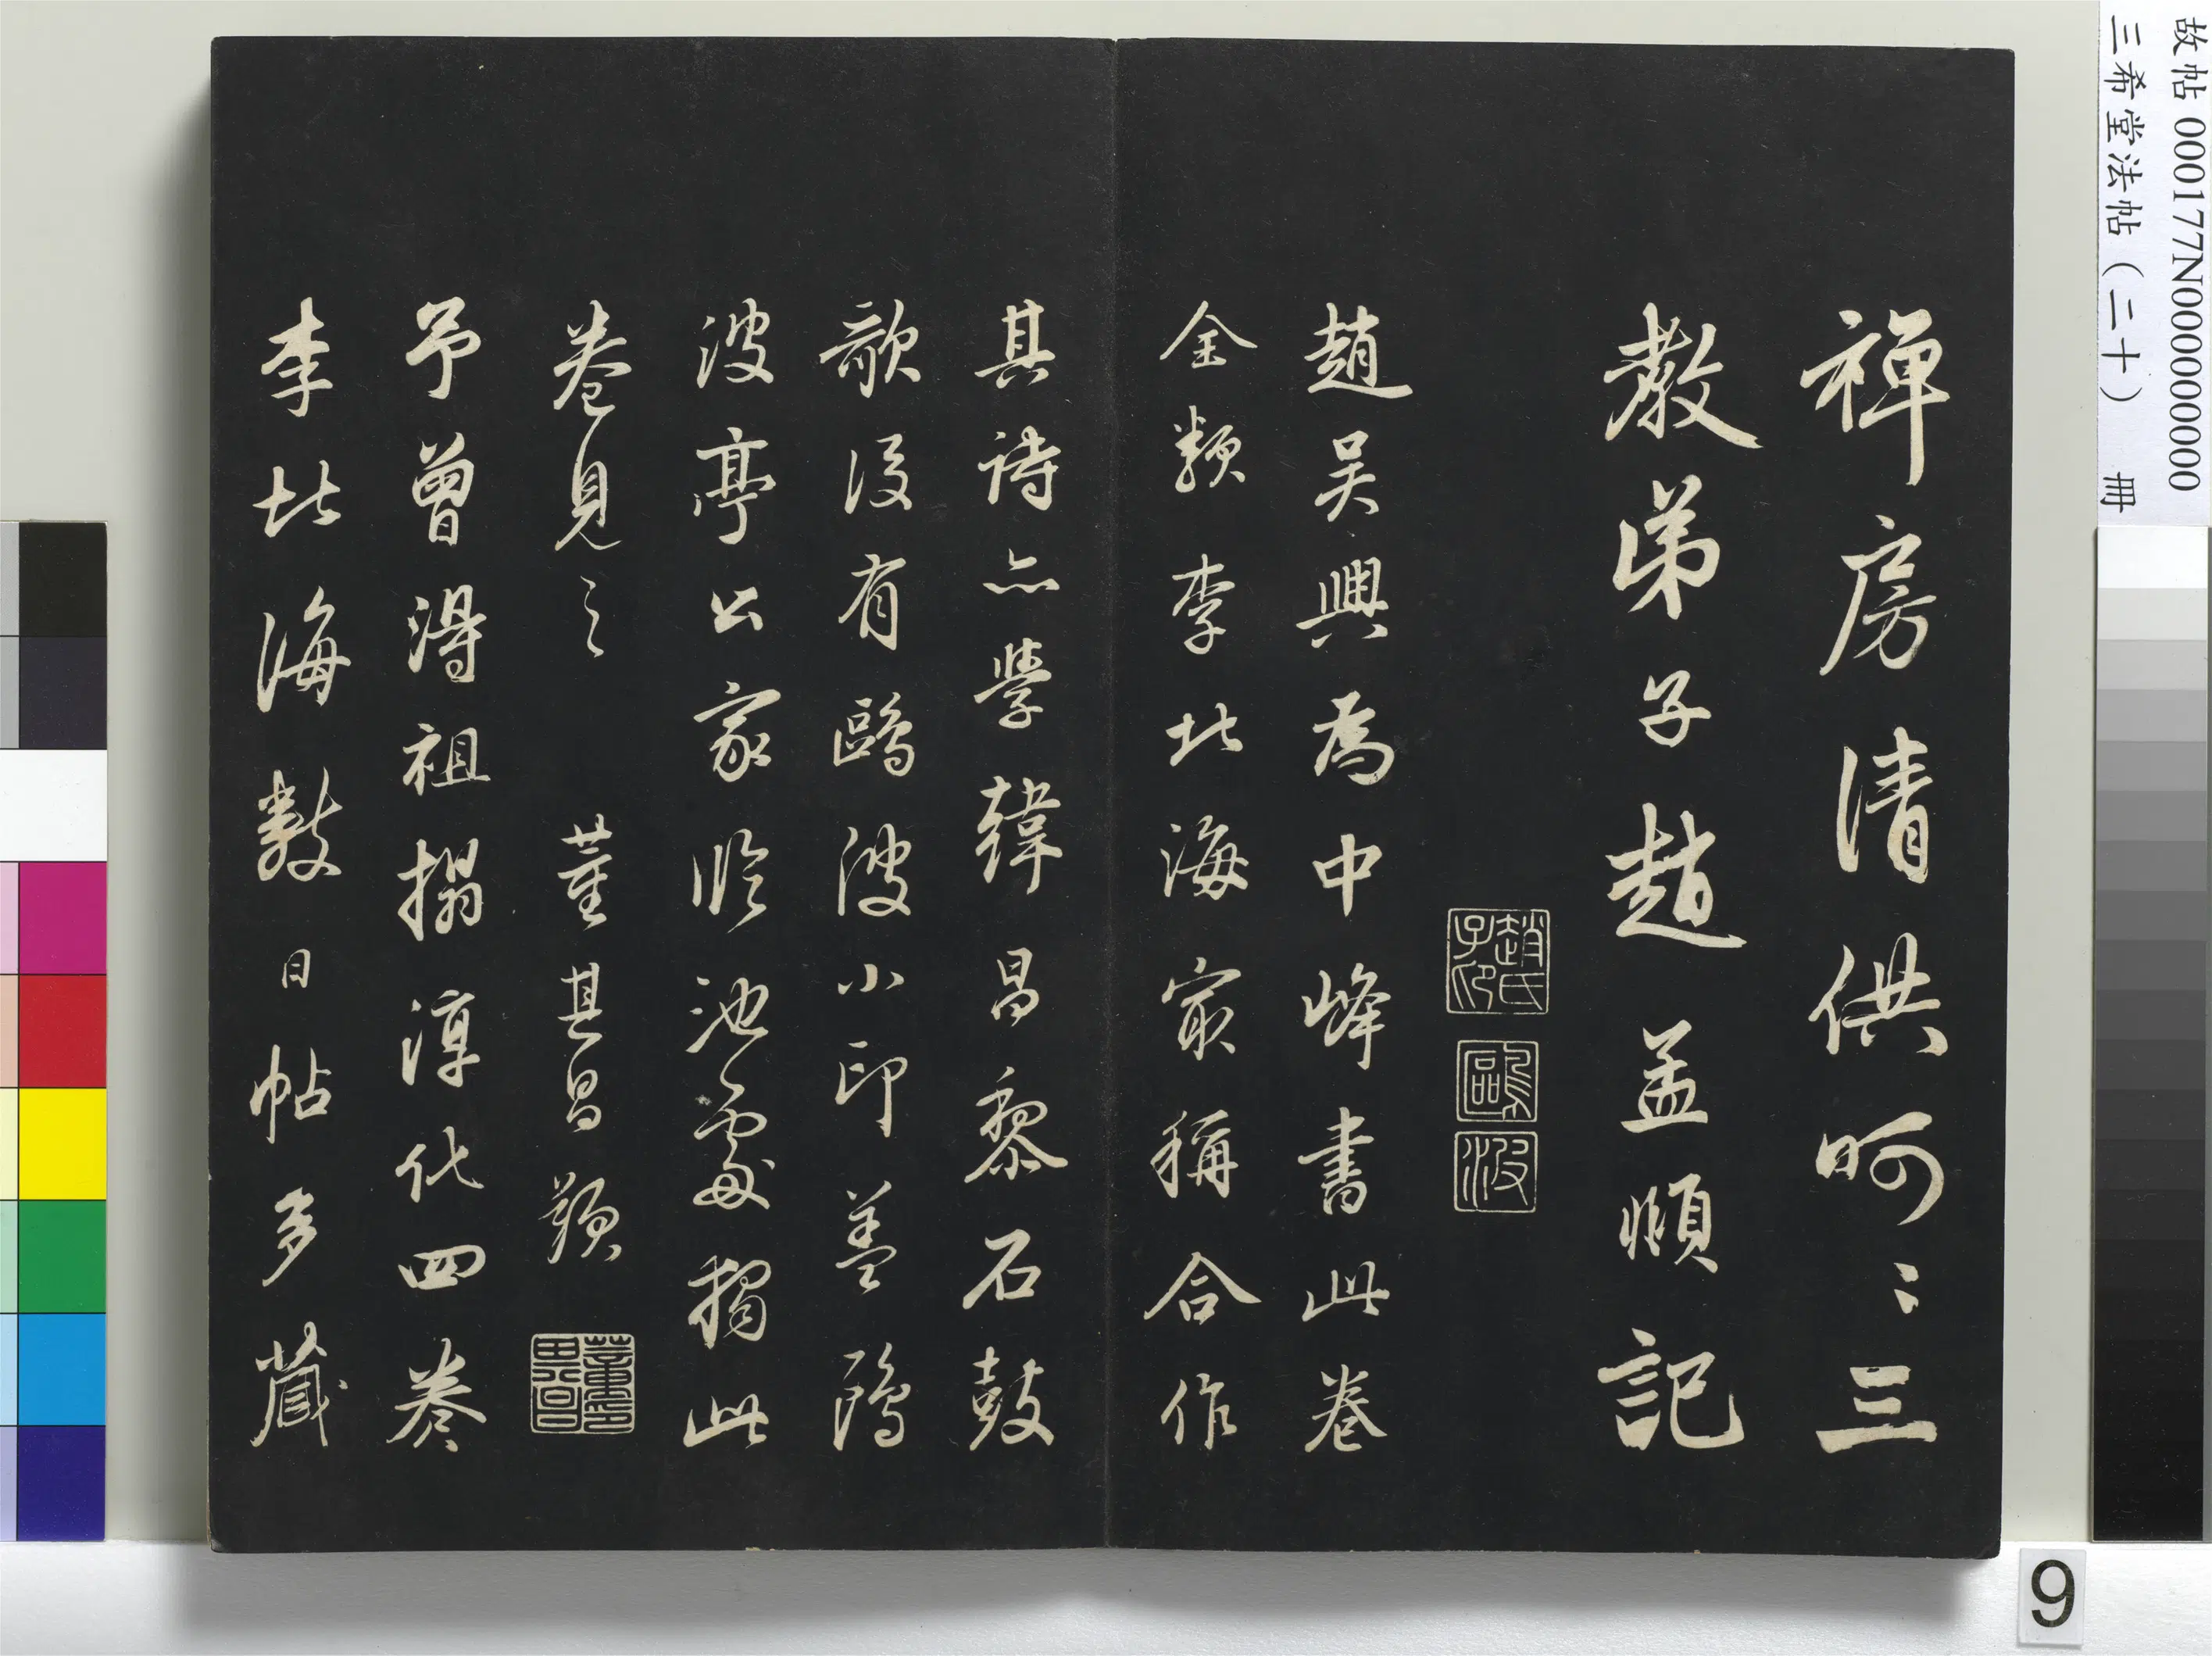 故帖 000177N000000000
三希堂法帖（二十） 冊
禅房清供呵〻三
教弟子趙孟頫記
趙氏子印
鷗波
趙吳興為中峰書此卷
全類李北海寂稱合作
其詩亦學韓昌黎石鼓
歌後有鷗波小印蓋鷗
波亭公家臨池處獨此
卷見之 董其昌題
董其昌印
予曾得祖搨淳化四卷
李北海數日帖多藏
9